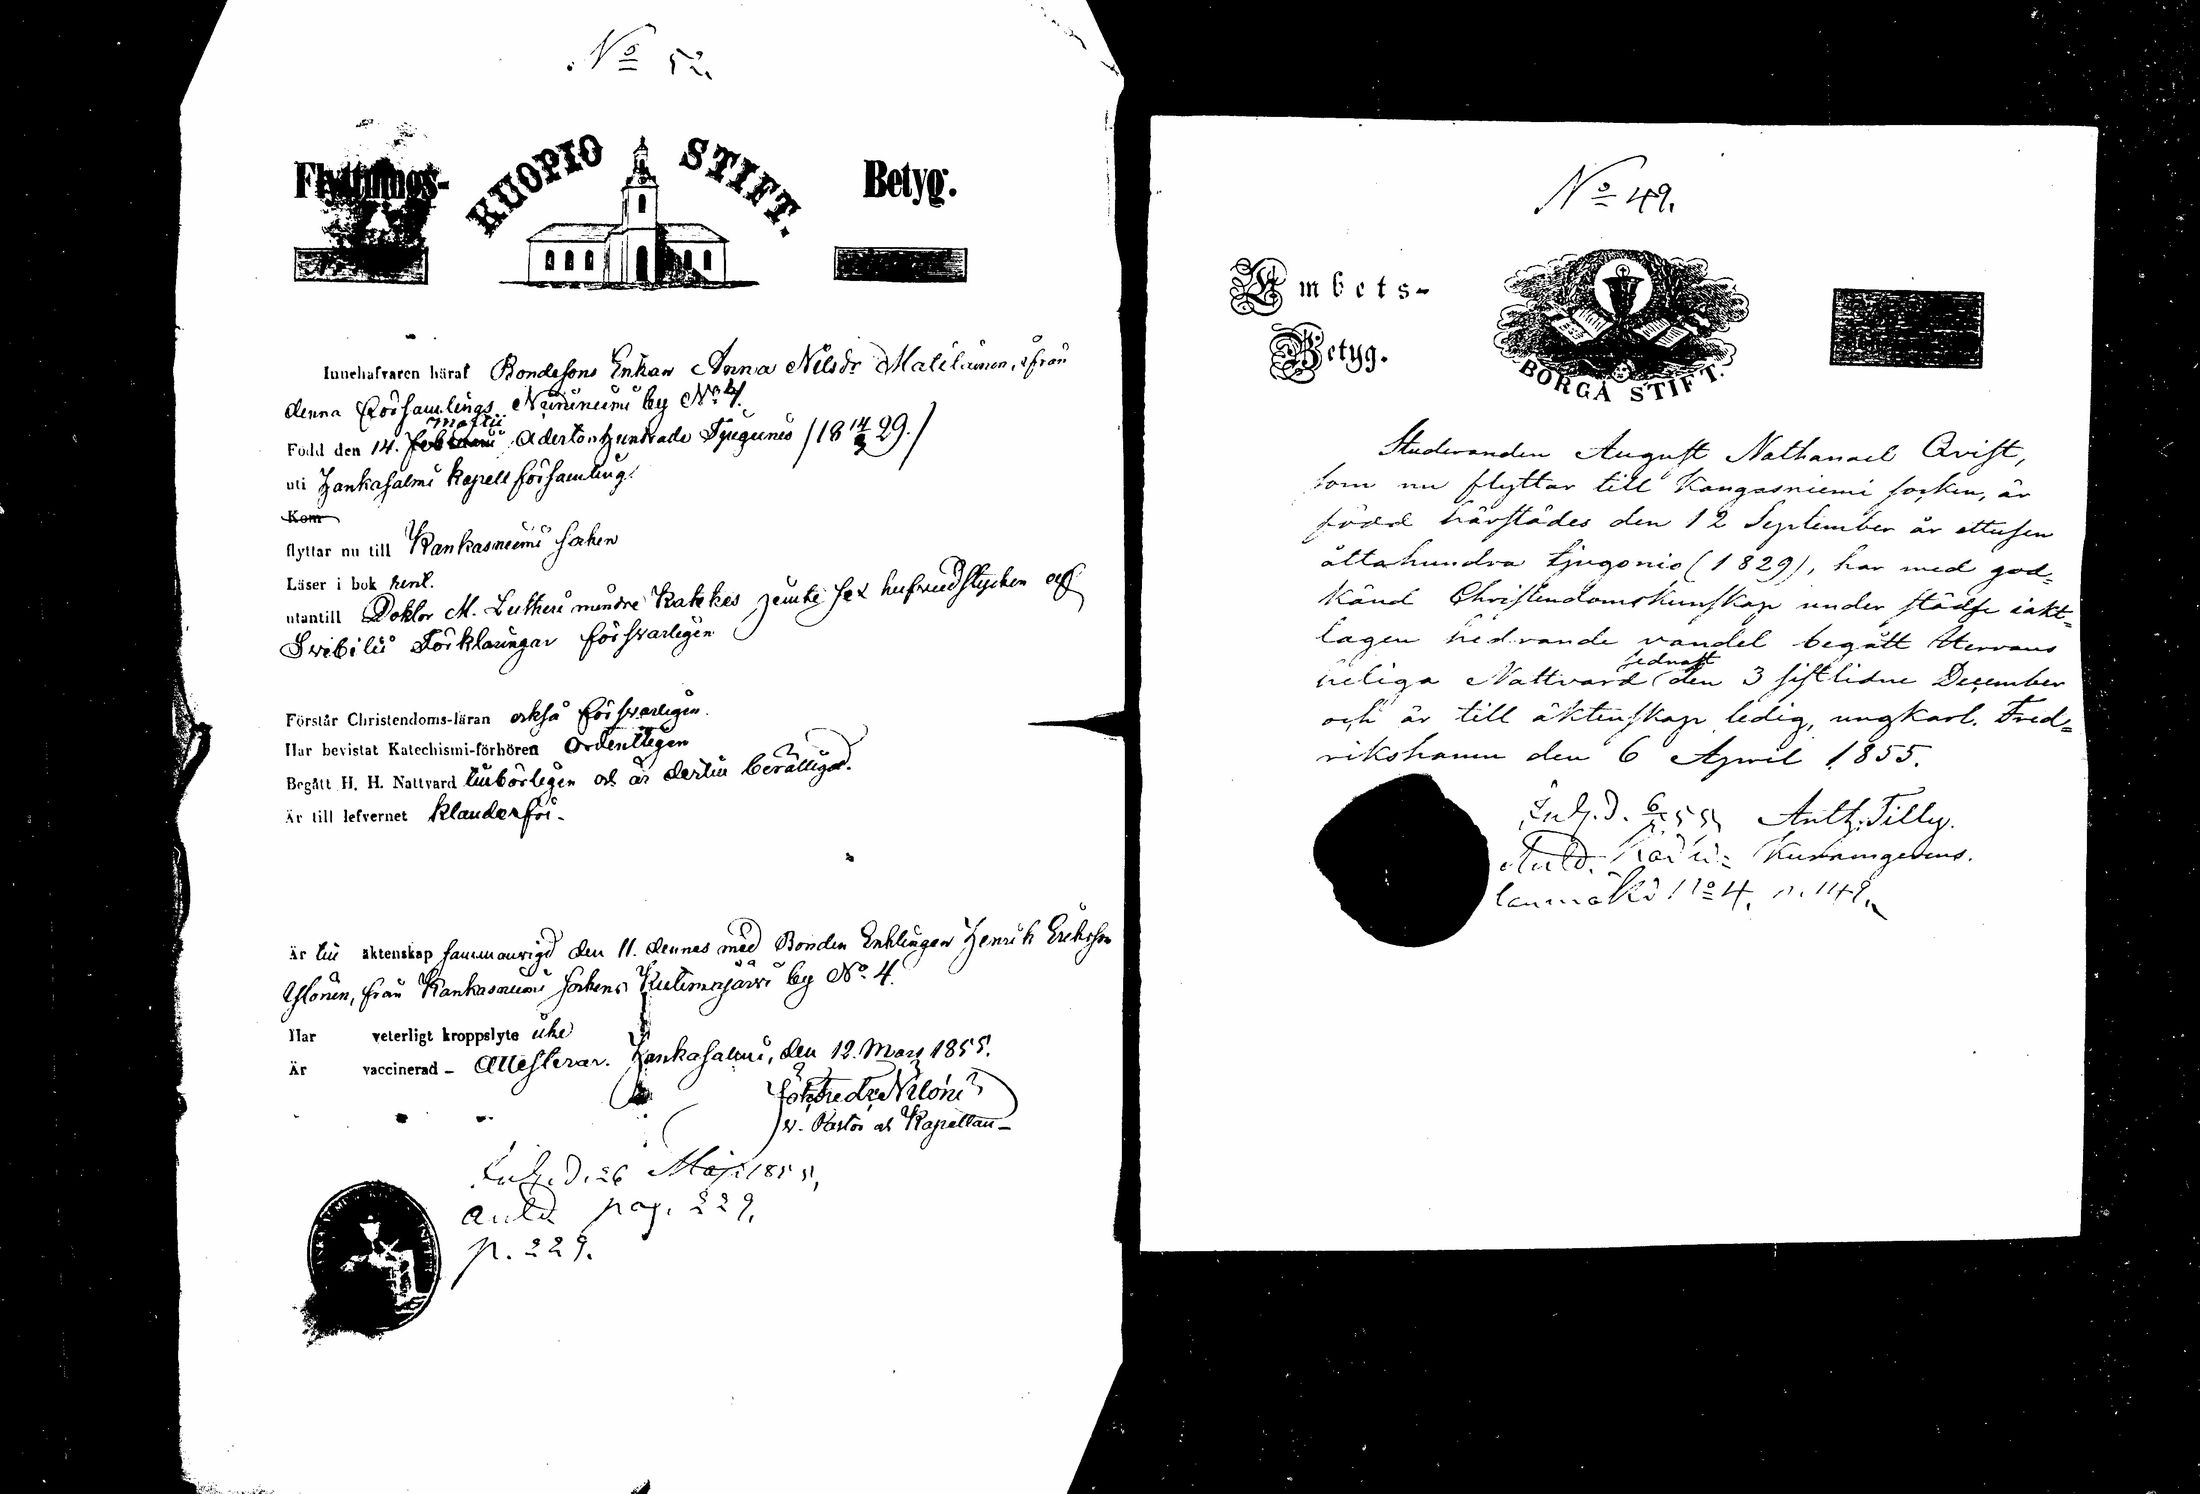 No 52.
Flyttnings-
KUOPIO STIFT.
Betyg.
Innehafvaren häraf Bondesons Enkan Anna Nilsdr Matilainen, ifrån
denna Församlings Niininiemi by No 4.
martii
Född den 14. februari Adertonhundrade Tjugunio /18 14/3 29./
uti Hankasalmi kapell församling.
Kom
flyttar nu till Kankasniemi socken
Läser i bok rent.
utantill Doktor M. Lutheri mindre Katekes jemte sex hufvudstycken och
Svebilii Förklaringar försvarligen
Förstår Christendoms-läran också försvarligen.
Har bevistat Katechismi-förhören Ordentligen
Begått H. H. Nattvard tillbörligen och är dertill berättigad.
Är till lefvernet klanderfri.
Är till äktenskap sammanvigd den 11. dennes med Bonden Enklingen Henrik Eriksson
Ylönen, från Kankasniemi sockens Kutemajärvi by No. 4.
Har veterligt kroppslyte icke
Är vaccinerad - Attesterar. Hankasalmi, den 12. Mars 1855.
v. Pastor och Kapellan
Inh. d. 26 Maji 1855,
pag. 229.
p. 229.
No 49.
Embets-
Betyg.
BORGÅ STIFT.
Studeranden August Nathanael Qvist,
som nu flyttar till Kangasniemi socken, är
född härstädes den 12 September år ettusen
åttahundra tjugonio (1829), har med god-
känd Christendomskunskap under städse iakt-
tagen hedrande vandel begått Herrans
sednast
heliga Nattvard den 3 sistlidne December
och är till äktenskap ledig, ungkarl. Fred-
rikshamn den 6 April 1855.
Anth. Tilly.
No 4. p. 149.